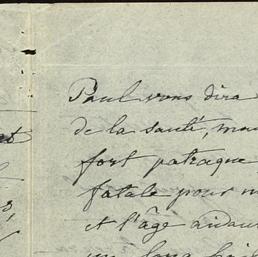 Paul vous dira
de la santé, mais
fort patraque
fatale pour m
et l'âge aidant
un long